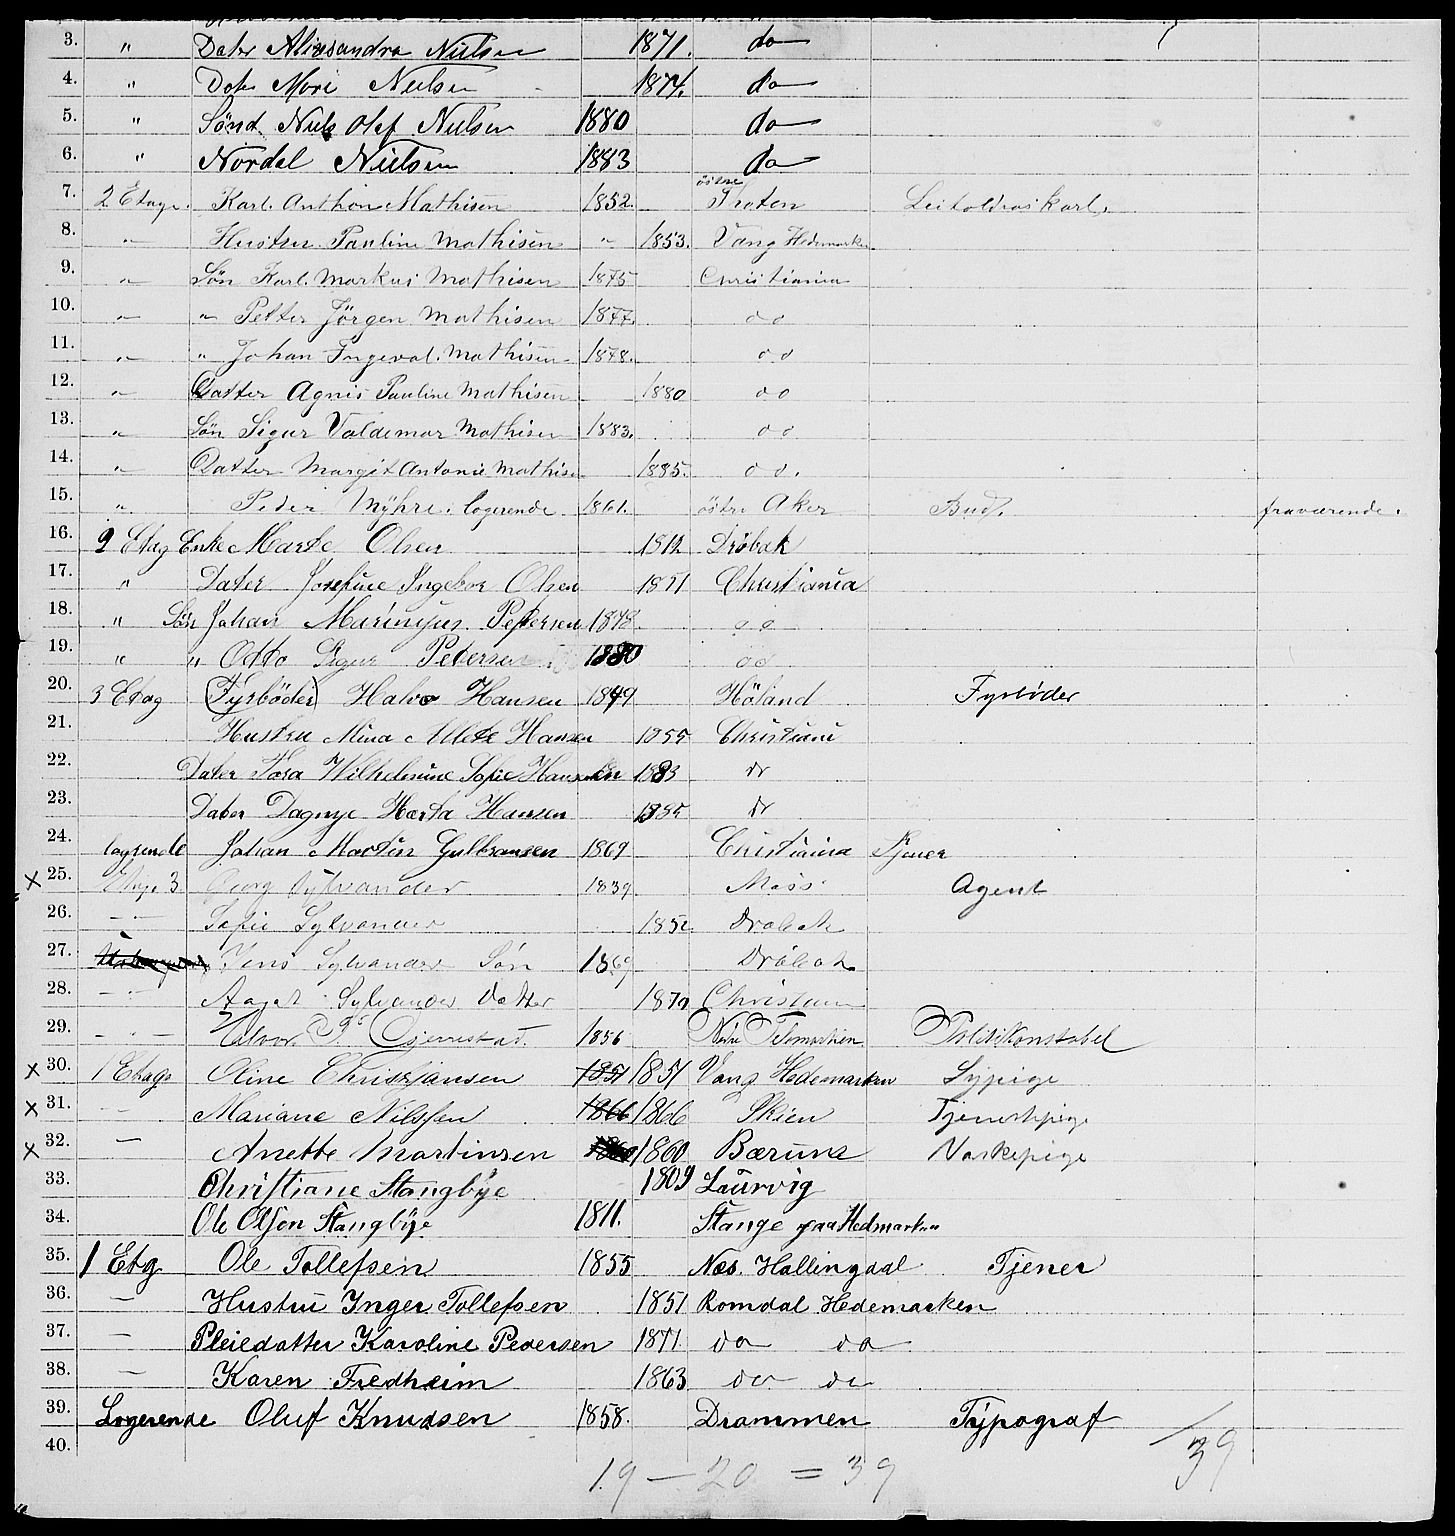 3. " Dater Alixsandra Nielsen 1871. do
4. " Dater Mari Nielsen 1874. do
5. " Sønd. Niels Olaf Nielsen 1880 do
6. " Nordal Nielsen 1883 do
7. 2 Etage. Karl. Anthon Mathisen 1852. östre Thoten
8. " Hustru Pauline Mathisen " 1853. Vang Hedemarken
9. " Søn Karl. Markus Mathisen 1875 Christiania
10. " " Petter Jörgen Mathisen 1877. do
11. " " Johan Ingeval. Mathisen 1878. do
12. " Datter Agnis Pauline Mathisen 1880 do
13. " Søn Sigur Valdemar Mathisen 1883. do
14. " Datter Margit Antonie Mathisen 1885. do.
15. " Peder Myhre. logerende 1861. östre Aker Bud. fraværende.
16. 2 Etag Enke Marte Olsen 1812 Dröbak
17. " Dater Josefine Ingebor Olsen 1851 Christiania
18. " Søn Johan Marinius Petersen 1848 do
19. " " Otto Sigur Petersen 1880 do
20. 3 Etag (Fyrbøder) Halvo Hansen 1849 Höland Fyrbøder
21. Hustru Mina Mlete Hansen 1855 Christiani
22. Dater Tora Wilhelmine Sofie Hansen 1883 do
23. Dater Dagnye Harta Hansen 1885 do
24. logerende Johan Martin Gulbransen 1869 Christiania Tjener
x 25. Etage 3. Georg Sylvander 1839 Moss Agent
26. — Sofie Sylvander 1852 Dröbak
27. Jens Sylvander Søn 1869 Dröbak
28. — Aagot Sylvander Datter 1870 Christiania
29. — Halvor 1856 Nedre Telemarken Politikonstabel
x 30. 1 Etage Oline Chrisjansen 1851 1851 Vang Hedemarken Sypige
x 31. — Mariane Nilssen 1866 1866 Skien Tjenestepige
x 32. — Anette Martinsen 1860 1860 Bærum Vaskepige
33. Christiane Stangbye 1809 Laurvig
34. Ole Olsen Stangbye 1811. Stange paa Hedmarken
35. 1 Etg Ole Tollefsen 1855 Næs. Hallingdal Tjener
36. — Hustru Inger Tollefsen 1851 Romdal Hedemarken
37. — Pleiedatter Karoline Pedersen 1871 do do
38. — Karen Fredheim 1863 do do
39. Logerende Oluf Knudsen 1858. Drammen Typograf
40.
19 — 20 = 39
39